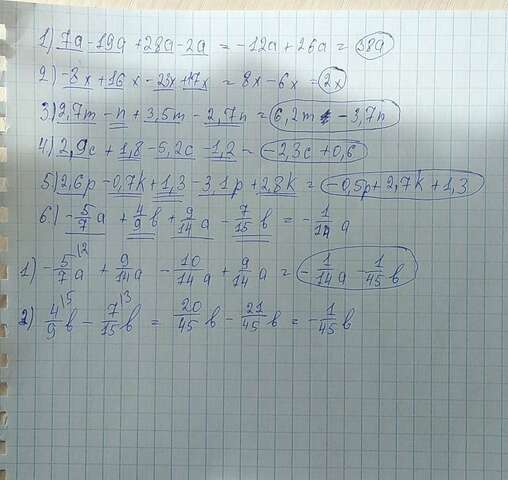 1) 7a - 19a + 28a - 2a = -12a + 26a = 38a
2) -8x + 16x - 23x + 17x = 8x - 6x = 2x
3) 2,7m - n + 3,5m - 2,7n = 6,2m - 3,7n
4) 2,9c + 1,8 - 5,2c - 1,2 = -2,3c + 0,6
5) 2,6p - 0,7k + 1,3 - 3,1p + 2,8k = -0,5p + 2,7k + 1,3
6) -5/7 a + 4/9 b + 9/14 a - 7/15 b = -1/14 a
1) -5/7 a \2 + 9/14 a - 10/14 a + 9/14 a = -1/14 a - 1/45 b
2) 4/9 \5 b - 7/15 \3 b = 20/45 b - 21/45 b = -1/45 b